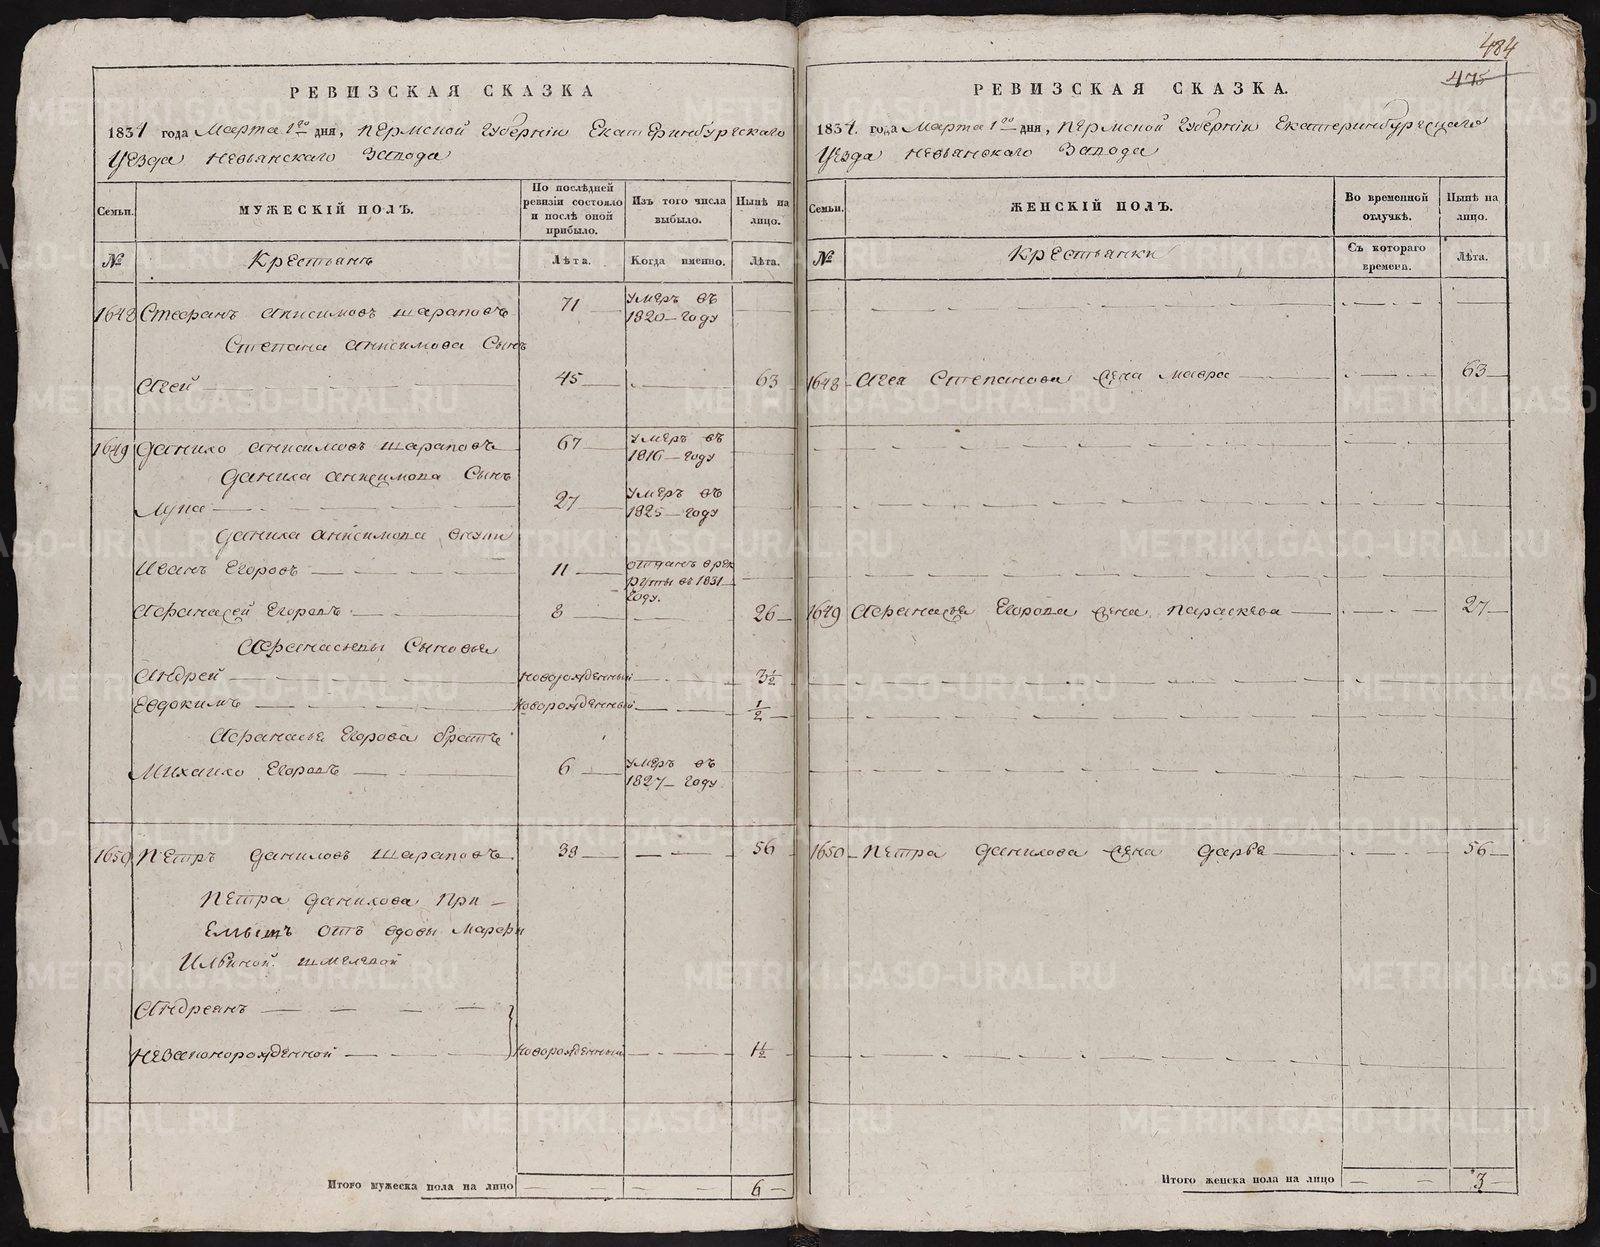 484
475
РЕВИЗСКАЯ СКАЗКА
1834 года Марта 1го дня, Пермской Губернiи Екатеринбургскаго
Уезда Невьянскаго Завода
Семьи.
МУЖЕСКIЙ ПОЛЪ.
По послѣдней ревизiи состояло и послѣ оной прибыло.
Изъ того числа выбыло.
Нынѣ на лицо.
№
Крестьянъ
Лѣта.
Когда именно.
Лѣта.
1648 Стефанъ Анисимовъ Шараповъ 71 умеръ въ 1820 году
Степана Анисимова Сынъ
Агей 45 63
1649 Данило Анисимовъ Шараповъ 67 умеръ въ 1816 году
Данила Анисимова Сынъ
Лупа 27 умеръ въ 1825 году
Данила Анисимова внуки
Иванъ Егоровъ 11 отданъ в рекруты въ 1831 году.
Афанасей Егоровъ 8 26
Афанасьевы Сыновья
Андрей новорожденный 3½
Евдокимъ новорожденный ½
Афанасья Егорова братъ
Михайло Егоровъ 6 умеръ въ 1827 году
1650 Петръ Даниловъ Шараповъ. 38 56
Петра Данилова При-
емышъ отъ вдовы Марфы
Ильиной Шмелевой
Андреянъ
незаконорожденной новорожденный 1½
Итого мужеска пола на лицо 6
РЕВИЗСКАЯ СКАЗКА.
1834. года Марта 1го дня, Пермской Губернiи Екатеринбургскаго
Уезда Невьянскаго Завода
Семьи.
ЖЕНСКIЙ ПОЛЪ.
Во временной отлучкѣ.
Нынѣ на лицо.
№
Крестьянки
Съ котораго времени.
Лѣта.
1648 Агея Степанова жена Мавра 63
1649 Афанасья Егорова жена Параскева 27
1650 Петра Данилова жена Дарья 56
Итого женска пола на лицо 3
METRIKI.GASO-URAL.RU